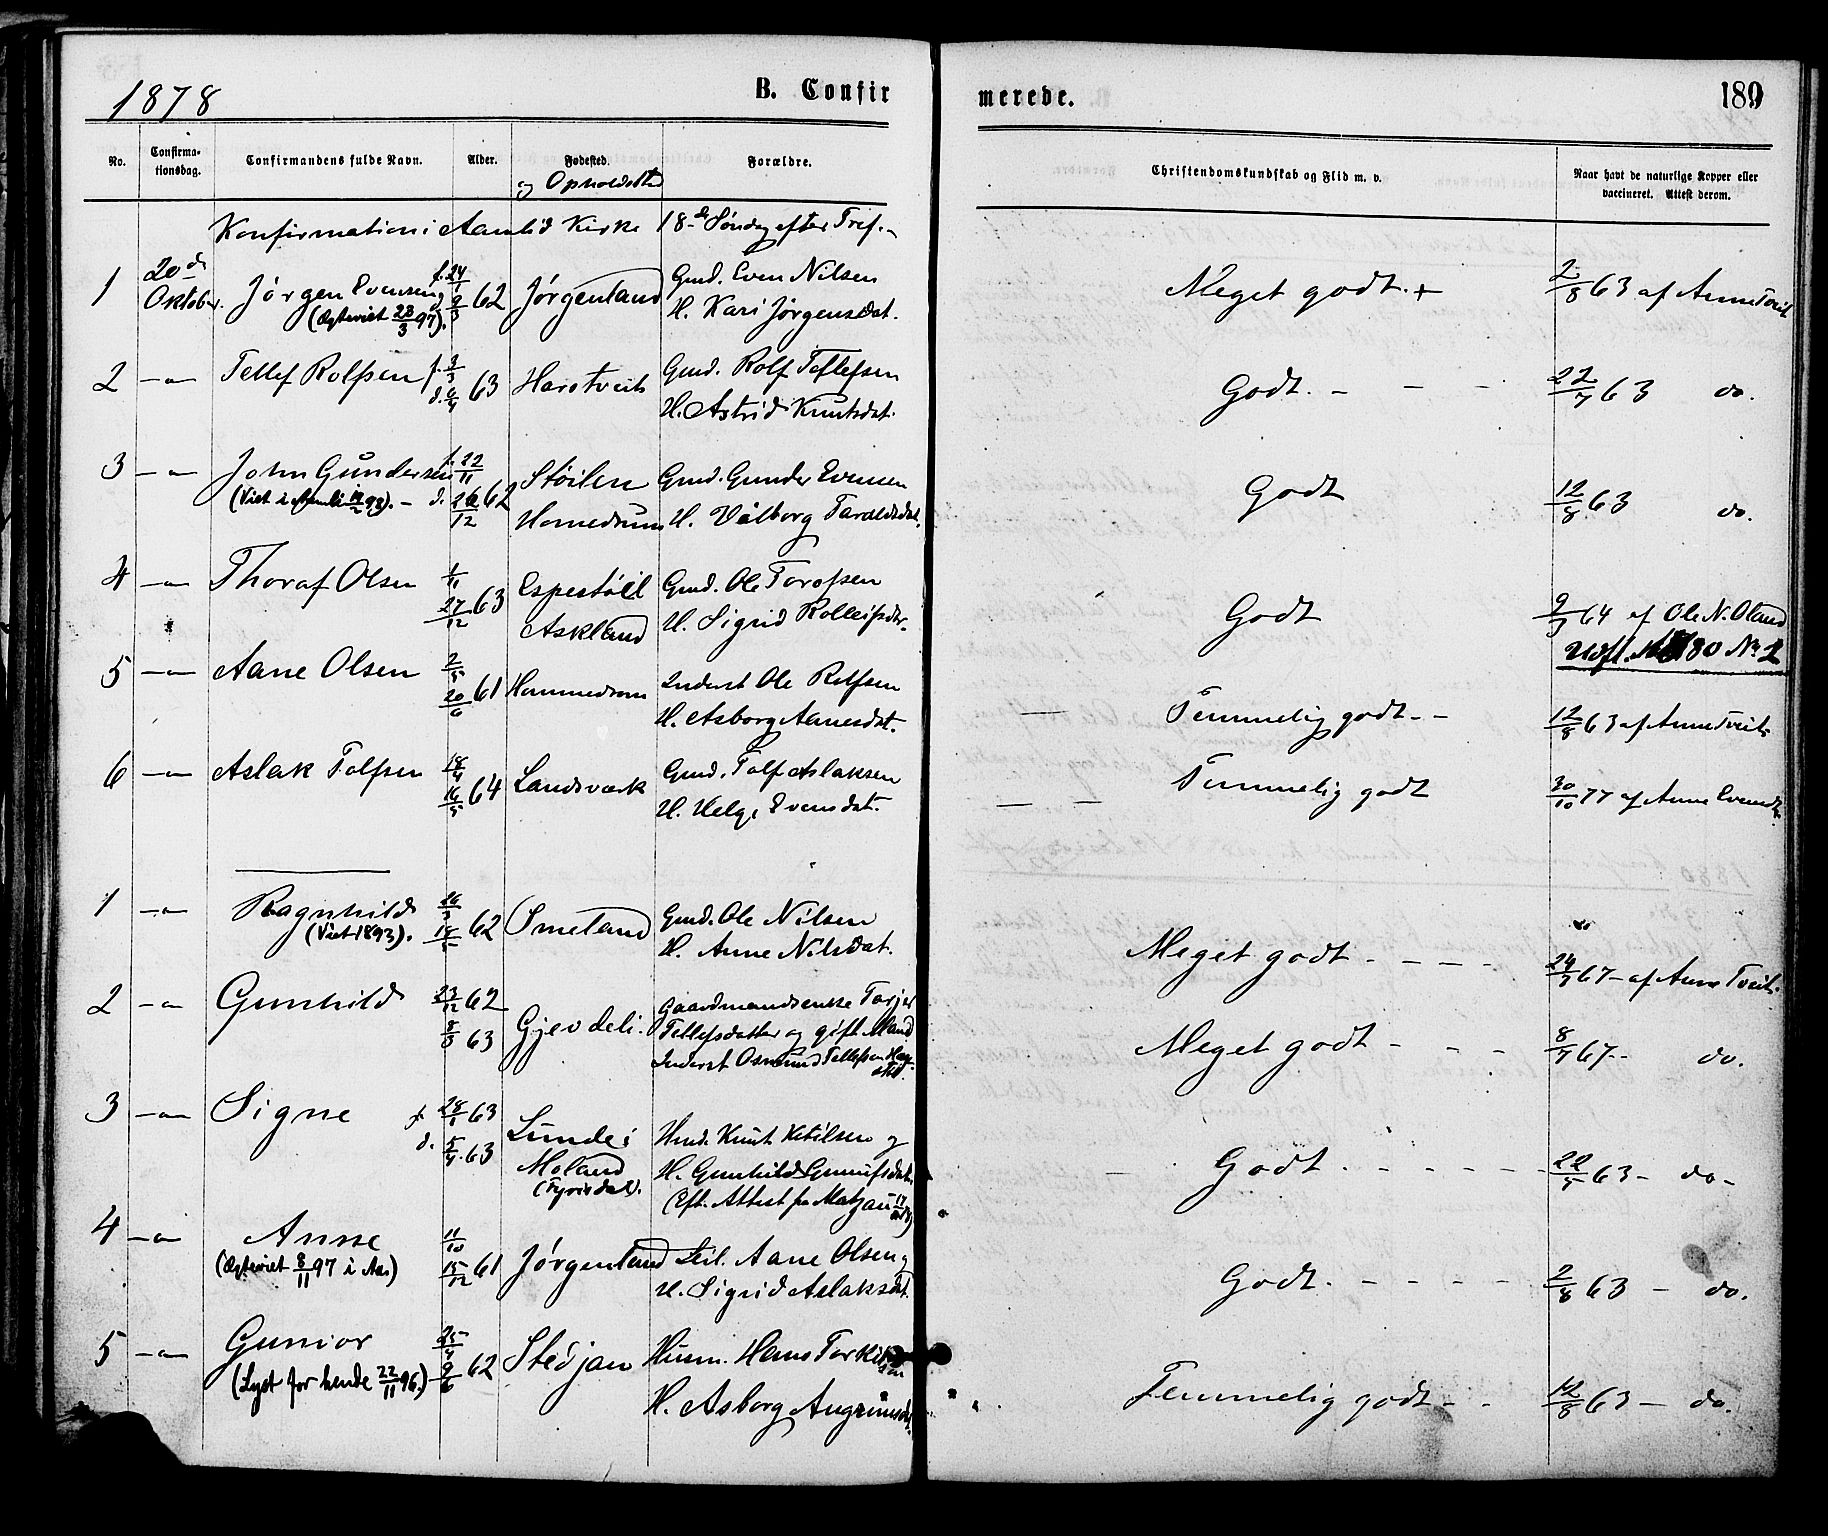 1878 B. Confirmerede. 189
No. Confirmationsdag. Confirmandens fulde Navn. Alder. Fødested. og Opholdssted Forældre. Christendomskundskab og Flid m. v. Naar havt de naturlige Kopper eller vaccineret. Attest derom.
Konfirmation i Aamlid Kirke 18de Søndag efter Tref.
1 20de Oktober. Jørgen Evensen f. 24/1 d. 9/3 62 Jørgenland Gmd. Even Nilsen Meget godt.+ 2/8 63 af Anne Tveit
(Ægteviet 28/3 97). H. Kari Jørgensdat.
2 —"— Tellef Rolfsen f. 3/3 d. 6/4 63 Harstveit Gmd. Rolf Tellefsen Godt. - - - 22/7 63 do.
H. Astrid Knutsdat.
3 —"— John Gundersen f. 22/11 Støilen Gmd. Gunder Evensen Godt 12/8 63 do.
(Viet i Aamli 98). - d. 26/12 62 Homedrum H. Valborg Taraldsdat.
4 —"— Thoraf Olsen 1/11 Espestøil Gmd. Ole Torofsen Godt 9/3 64 af Ole N. Oland
27/12 63 Askland H. Sigrid Rolleifsdtr. Udfl. 80 No 1
5 —"— Aane Olsen 2/5 20/6 61 Hommedrom Inderst Ole Rolfsen Temmelig godt. - 12/8 63 af Anne Tveit
H. Asborg Aanesdat.
6 —"— Aslak Tolfsen 18/4 16/5 64 Landsværk Gmd. Tolf Aslaksen Temmelig godt 30/10 77 af Anne Evensdt.
H. Helge Evensdat.
1 —"— Ragnhild 26/3 18/5 62 Smeland Gmd. Ole Nilsen Meget godt - - - - 24/7 67 - af Anne Tveit.
(Viet 1893). H. Anne Nilsdat.
2 —"— Gunhild 23/12 62 8/3 63 Gjevdeli. Gaardmandsenke Torjer Meget godt - - - 8/7 67 - do.
Tellefsdatter og gift Mand
Inderst Osmund Tellefsen
3 —"— Signe f 28/1 63 Lunde i Hmd. Knut Ketilsen og Godt. - - - - - 22/5 63 - do -
d. 5/4 63 Moland H. Gunhild Gunnufsdat.
(Fyrisdal). (Eft. Attest fra
4 —"— Anne 11/10 15/12 61 Jørgenland Leil. Aane Olsen og Godt. - - - - 2/8 63 - do.
(Ægteviet 8/11 97 i Aa.) H. Sigrid Aslaksdt.
5 —"— Gunvor 25/4 9/6 62 Stedjan Husm. Hans Torkelsen Temmelig godt - - 12/8 63 - do.
(Lyst for hende 22/11 96.) H. Asborg Angrimsd.